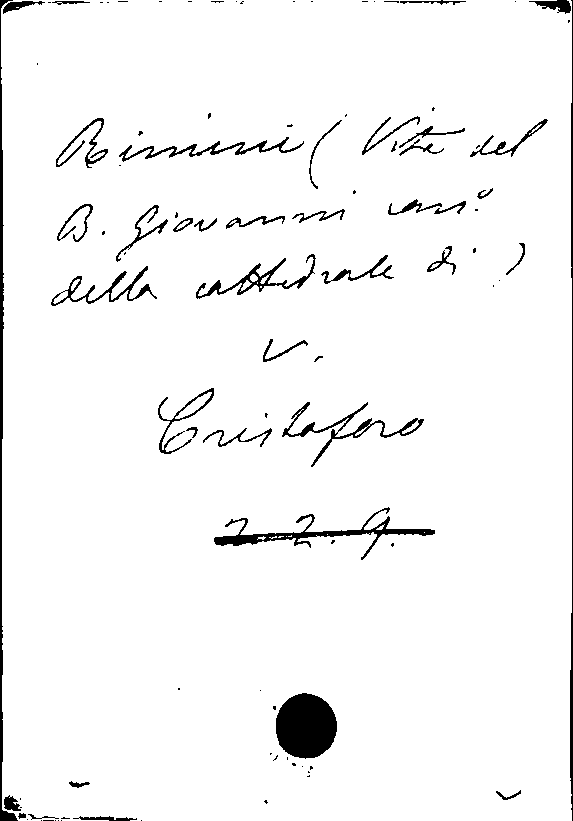 Rimini (Vita del
B. Giovanni can.º
della cattedrale di )
v.
Cristoforo
2. 2. 9.